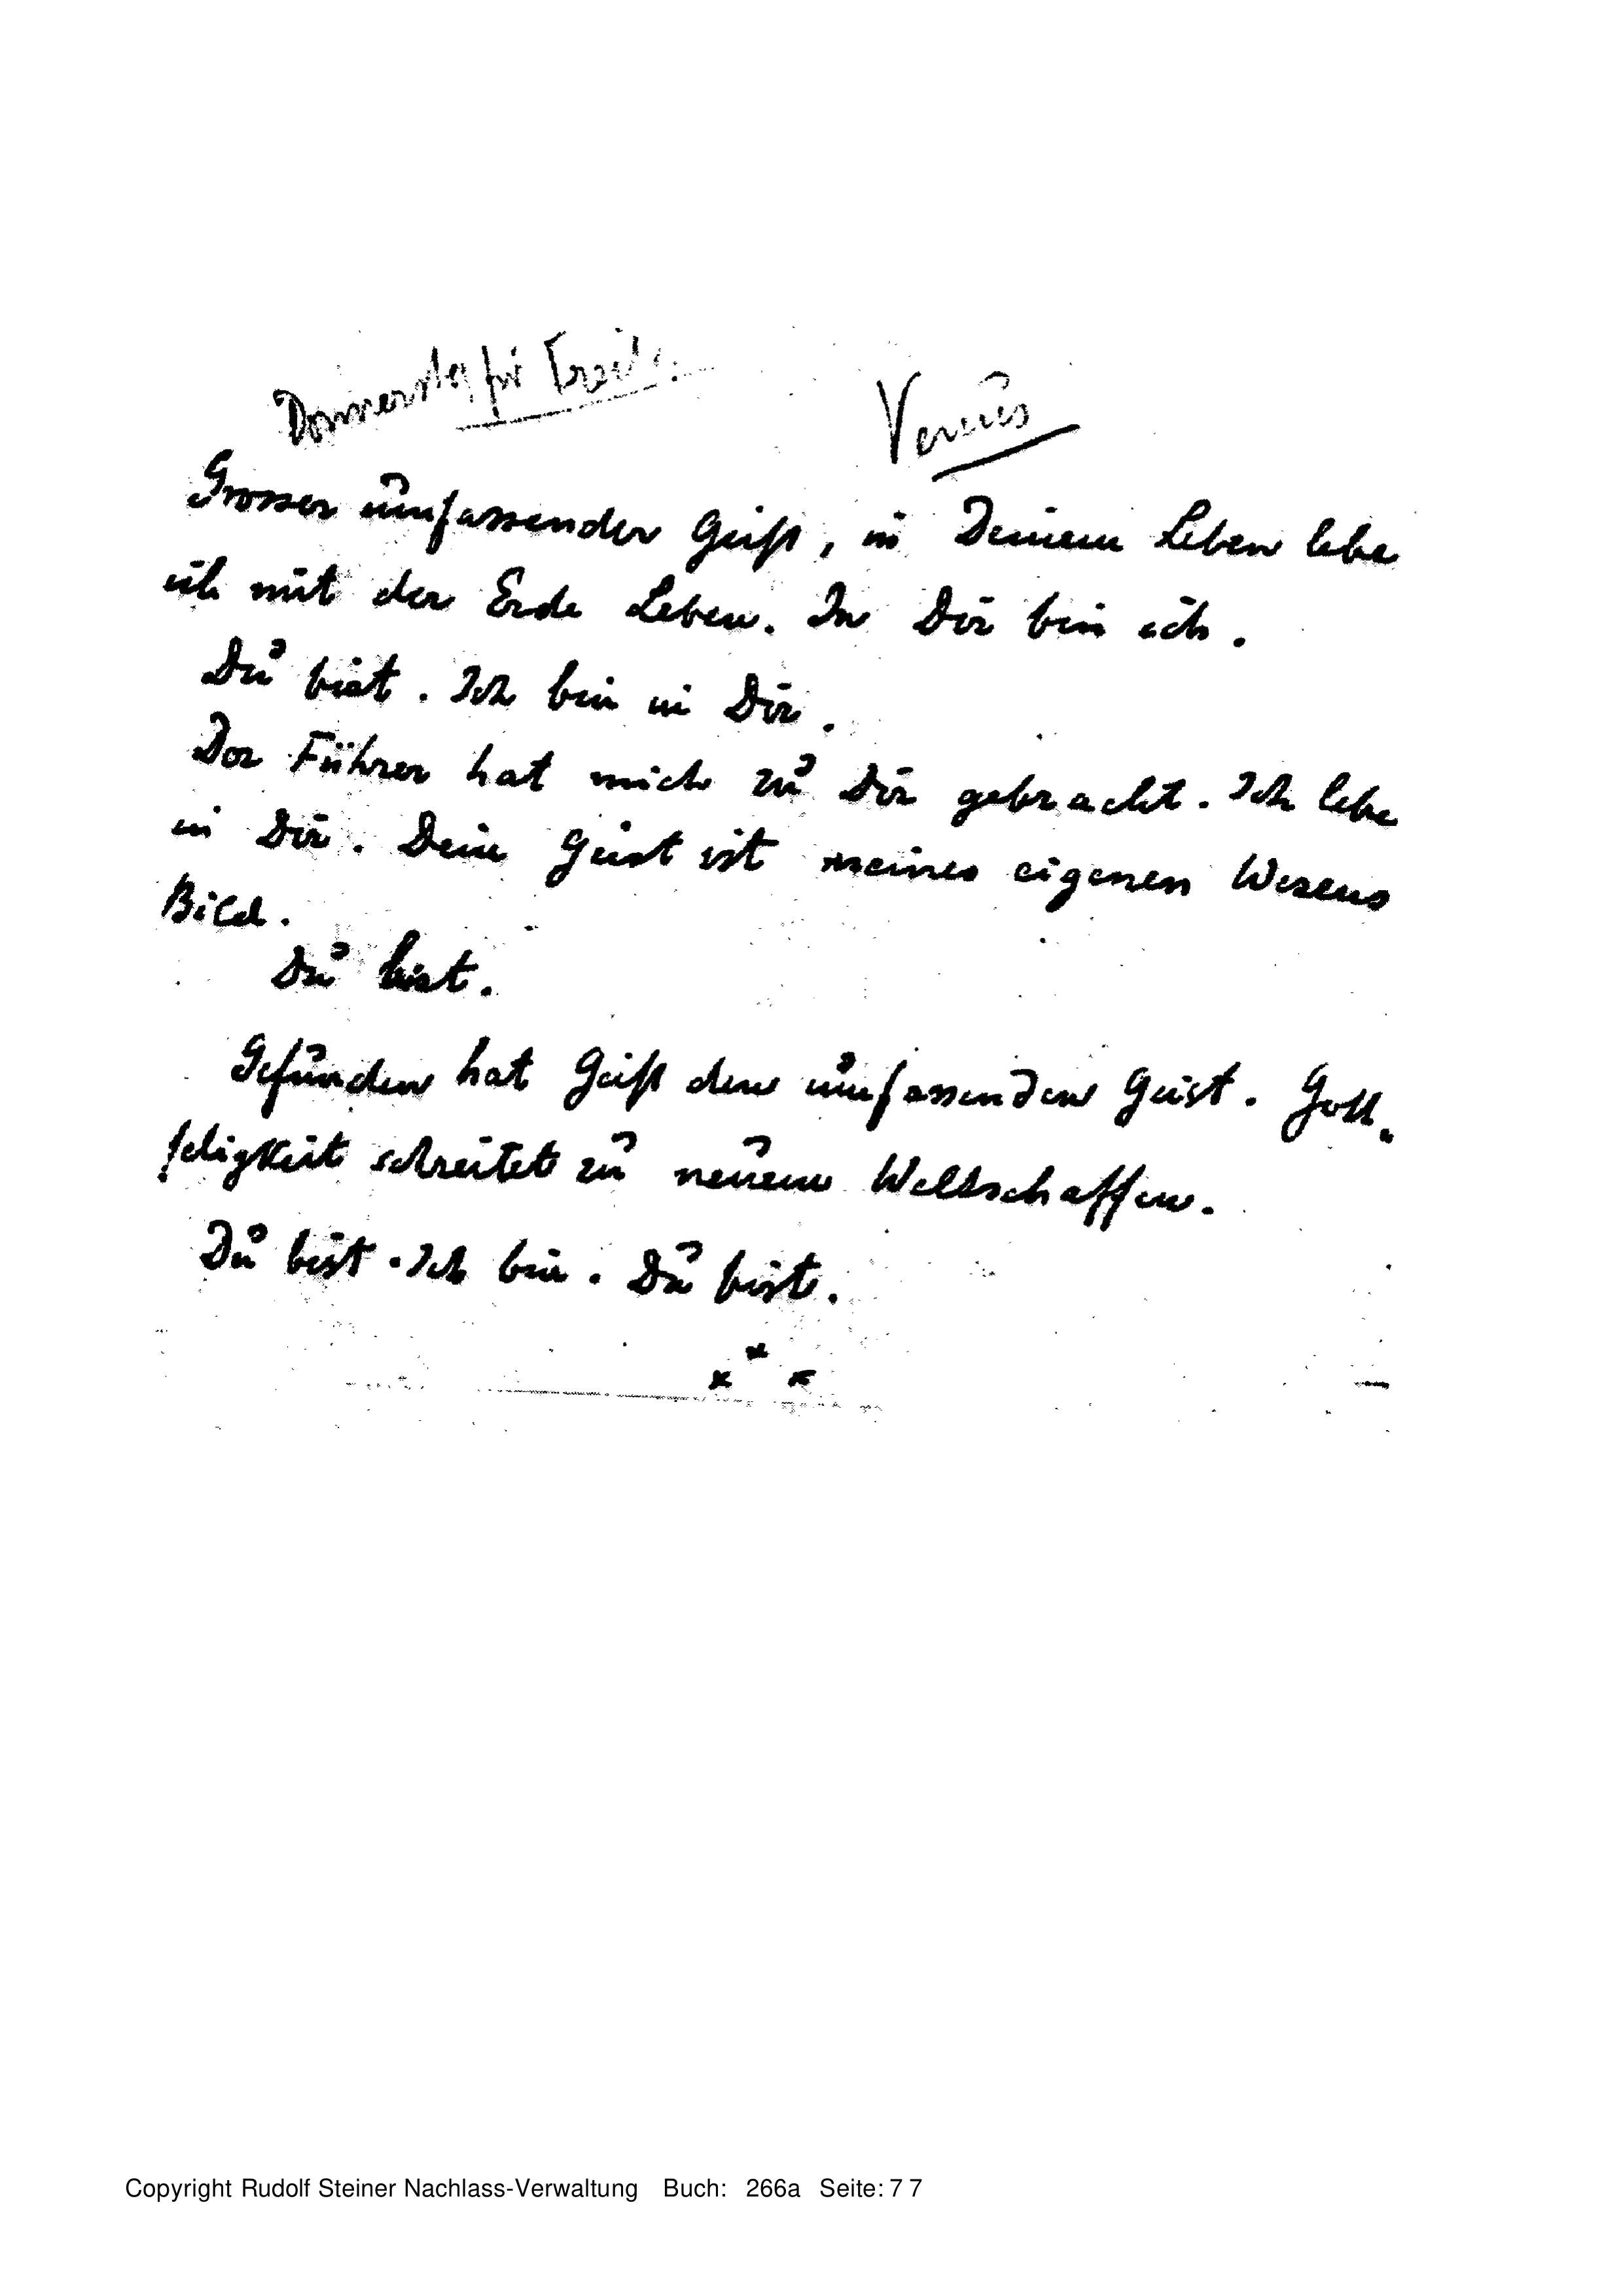 Donnerstag für Freit. Venus
Grosser umfassender Geist, in Deinem Leben lebe
ich mit der Erde Leben. In Dir bin ich.
Du bist. Ich bin in Dir.
Der Führer hat mich zu Dir gebracht. Ich lebe
in Dir. Dein Geist ist meines eigenen Wesens
Bild.
Du bist.
Gefunden hat Geist den umfassenden Geist. Gott-
seligkeit schreitet zu neuem Weltschaffen.
Du bist. Ich bin. Du bist.
Copyright Rudolf Steiner Nachlass-Verwaltung Buch: 266a Seite: 77